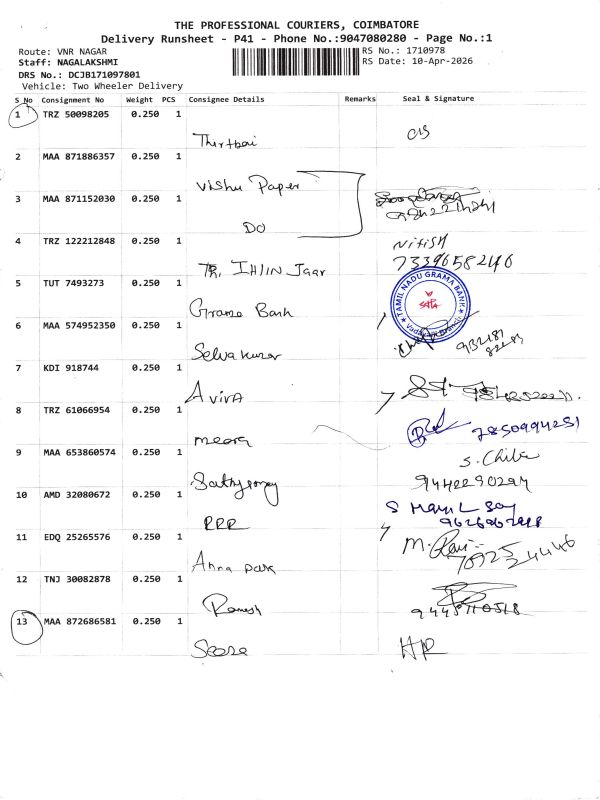 THE PROFESSIONAL COURIERS, COIMBATORE
Delivery Runsheet - P41 - Phone No.:9047080280 - Page No.:1
Route: VNR NAGAR
RS No.: 1710978
Staff: NAGALAKSHMI
RS Date: 10-Apr-2026
DRS No.: DCJB171097801
Vehicle: Two Wheeler Delivery
S No Consignment No Weight PCS Consignee Details Remarks Seal & Signature
1 TRZ 50098205 0.250 1
2 MAA 871886357 0.250 1
Vishu Paper
3 MAA 871152030 0.250 1
DO
4 TRZ 122212848 0.250 1 Nitish
7339658246
5 TUT 7493273 0.250 1
TAMIL NADU GRAMA BANK
Grama Bank
6 MAA 574952350 0.250 1
Selva kumar
7 KDI 918744 0.250 1
AVIRA
8 TRZ 61066954 0.250 1
meera
7850994251
9 MAA 653860574 0.250 1
S. Chila
9442290294
10 AMD 32080672 0.250 1
RRR
11 EDQ 25265576 0.250 1
M. Ravi
70925 24446
Anna park
12 TNJ 30082878 0.250 1
Ramesh
9445110518
13 MAA 872686581 0.250 1